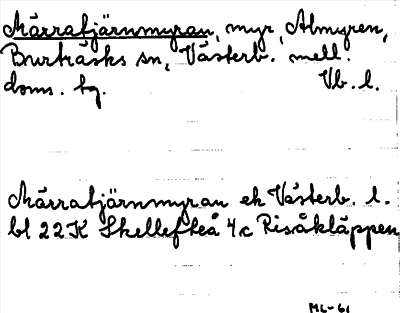 Märratjärnmyran, myr, Almyren,
Burträsks sn, Västerb. mell.
doms. hg. Vb. l.
Märratjärnmyran ek Västerb. l.
bl 22K Skellefteå 4c Risåkläppen
ML-61